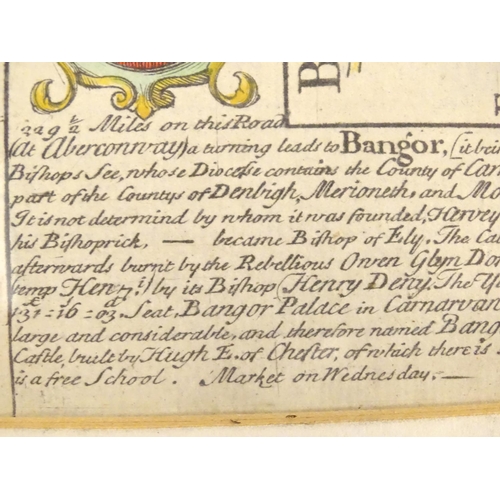 B
229 ½ Miles on this Road
(at Aberconway) a turning leads to Bangor, (it bein
Bishops See, whose Diocesse contains the County of Car
part of the Countys of Denbigh, Merioneth, and Mo
It is not determind by whom it was founded, Hervey
his Bishoprick, — became Bishop of Ely. The Ca
afterwards burnt by the Rebellious Owen Glyn Don
temp Hen 7:) by its Bishop (Henry Deny. The
131=16=03. Seat, Bangor Palace in Carnarvan
large and considerable, and therefore named Bang
Castle, built by Hugh E. of Chester, of which there is
is a free School. Market on Wednesday. —